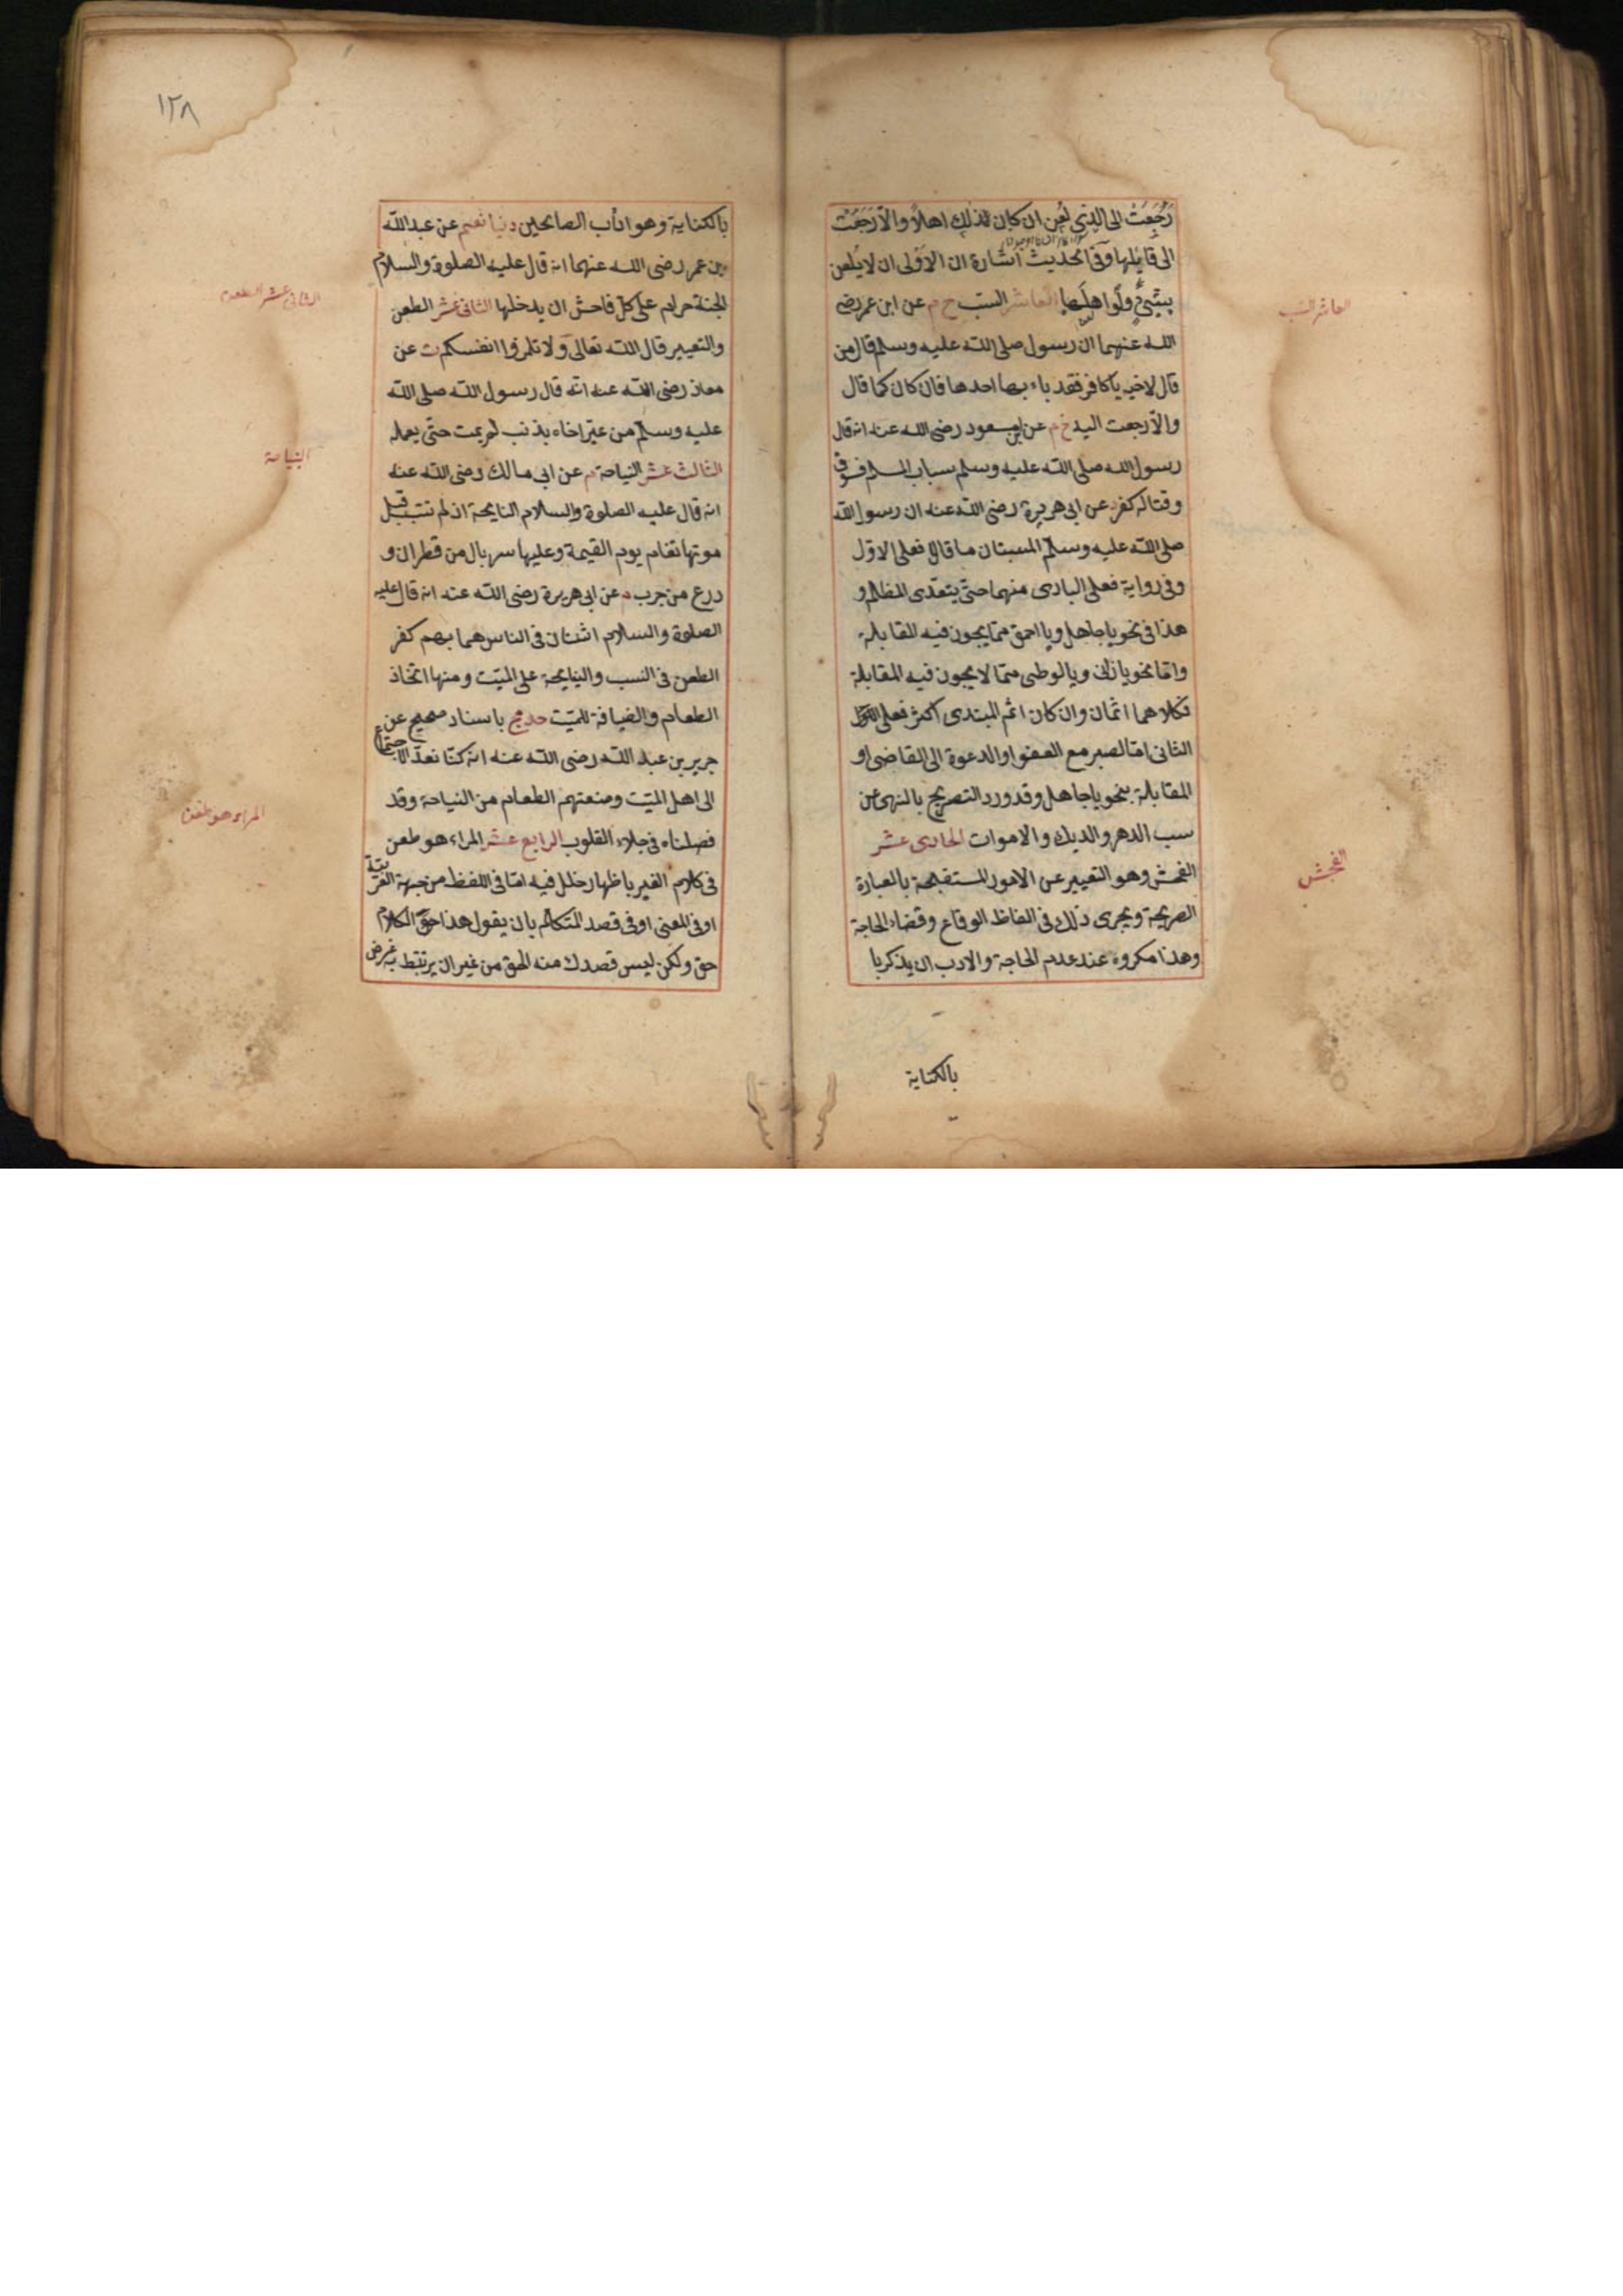 رَجَعَتْ الى الذى لُعِن ان كان لذلك اهلاً والّا رَجَعَتْ
الى قائلها وفى الحديث اشارة ان الاَوْلى ان لا يلعن
بشئٍ ولو اهلها العاشر السبّ خ م عن ابن عمر رضى
الله عنهما ان رسول صلى الله عليه وسلم قال من
قال لاخيه يا كافر فقد باء بها احدها فان كان كما قال
والّا رجعت اليه خ م عن ابن مسعود رضى الله عنه انه قال
رسول الله صلى الله عليه وسلم سباب المسلم فسوق
وقتاله كفر عن ابى هريرة رضى الله عنه ان رسول الله
صلى الله عليه وسلّم المستبان ما قالا فعلى الاوّل
وفى رواية فعلى البادى منهما حتى يتعدّى المظلوم
هذا فى نحو يا جاهل ويا احمق ممّا يجوز فيه المقابلة
وامّا نحو يا زانى ويا لوطى ممّا لا يجوز فيه المقابلة
فكلاهما اثمان وان كان اثم المبتدى اكثر فعلى
الثانى امّا الصبر مع العفو او الدعوة الى القاضى او
المقابلة بنحو يا جاهل وقد ورد التصريح بالنهى عن
سب الدهر والديك والاموات الحادى عشر
الفحش وهو التعبير عن الامور المستقبحة بالعبارة
الصريحة ويجرى ذلك فى الفاظ الوقاع وقضاء الحاجة
وهذا مكروه عند عدم الحاجة والادب ان يذكر با
بالكناية
العاشر السب
الفحش
١٢٨
بالكناية وهو اداب الصالحين دنيا نعيم عن عبد الله
بن عمر رضى الله عنهما انه قال عليه الصلوة والسلام
الجنة حرام على كلّ فاحش ان يدخلها الثانى عشر الطعن
والتعيير قال الله تعالى ولا تلمزوا انفسكم ت عن
معاذ رضى الله عنه انّه قال رسول الله صلى الله
عليه وسلّم من عيّر اخاه بذنب لم يمت حتى يعمله
الثالث عشر النياحة م عن ابى مالك رضى الله عنه
انه قال عليه الصلوة والسلام النايحة اذ لم تتب قبل
موتها تقام يوم القيمة وعليها سربال من قطران و
درع من جرب م عن ابى هريرة رضى الله عنه انه قال عليه
الصلوة والسلام اثنتان فى الناس هما بهم كفر
الطعن فى النسب والنايحة على الميّت ومنها اتّخاذ
الطعام والضيافة للميّت حد مج باسناد صحيح عن
جرير بن عبد الله رضى الله عنه انّه كنّا نعدّ الاجتماع
الى اهل الميّت ومنعتهم الطعام من النياحة وقد
فصلناه فى جلاء القلوب الرابع عشر المراء هو طعن
فى كلام الغير باظهار خلل فيه امّا فى اللفظ من جهة العربيّة
او فى المعنى او فى قصد المتكلّم بان يقول هذا حقّ الكلام
حق ولكن ليس قصدك منه الحق من غير ان يرتبط به غرض
الثانى عشر الطعن
النياحة
المراء هو طعن